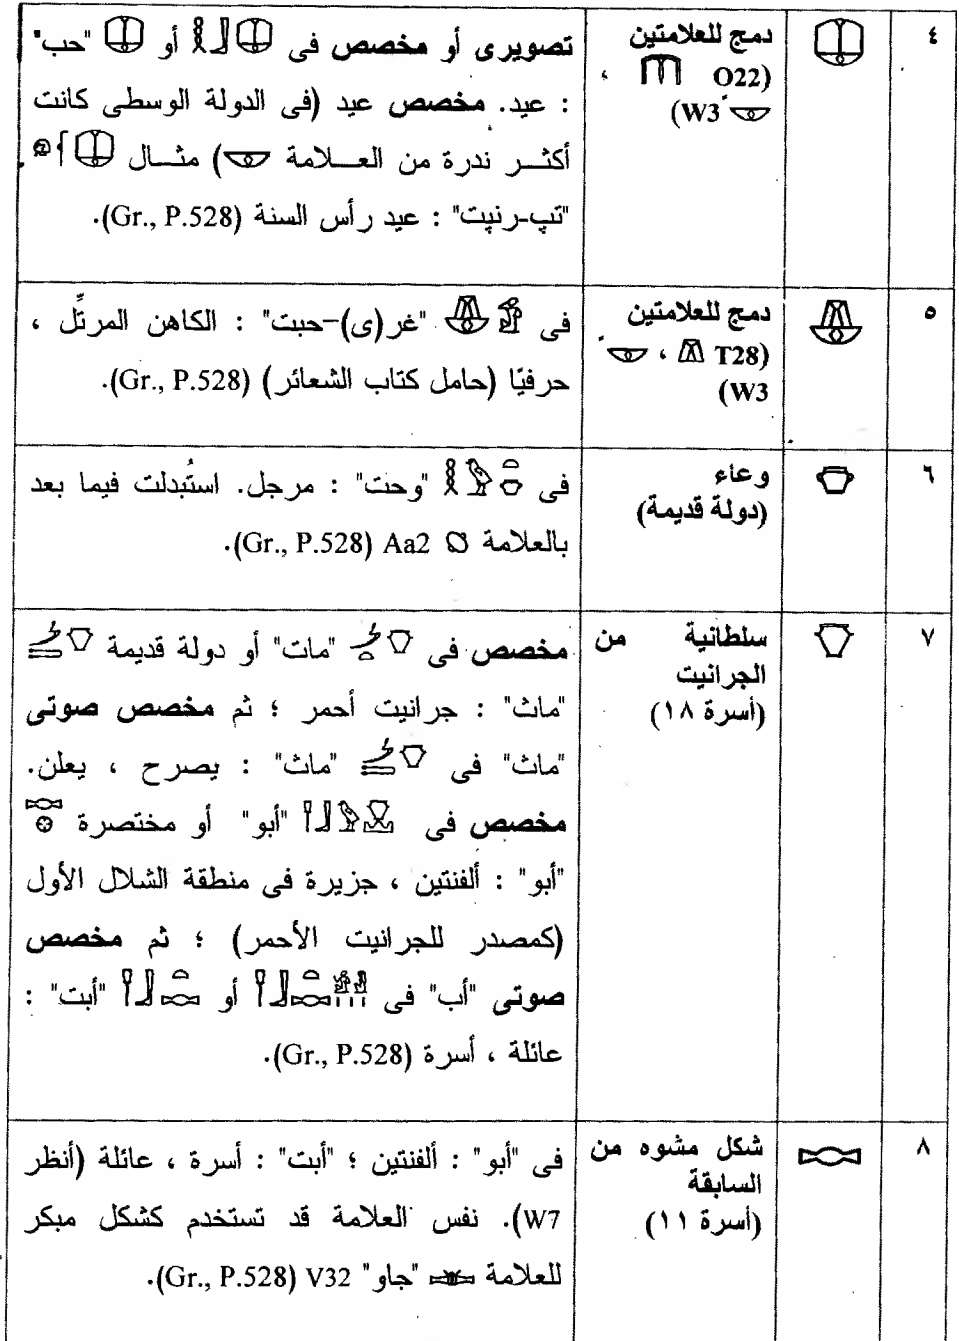 ٤
دمج للعلامتين
(O22 𓉲 ،
𓎱 W3)
تصويرى أو مخصص فى 𓎛𓃀𓎲 أو 𓎲 "حب"
: عيد. مخصص عيد (فى الدولة الوسطى كانت
أكثر ندرة من العلامة 𓎱) مثال
"تپ-رنپت" : عيد رأس السنة (Gr., P.528).
٥
دمج للعلامتين
(T28 𓌨 ، 𓎱
W3)
فى "غر(ى)-حبت" : الكاهن المرتِّل ،
حرفيًا (حامل كتاب الشعائر) (Gr., P.528).
٦
وعاء
(دولة قديمة)
فى "وحت" : مرجل. استُبدلت فيما بعد
بالعلامة 𓐎 Aa2 (Gr., P.528).
٧
سلطانية من
الجرانيت
(أسرة ١٨)
مخصص فى "مات" أو دولة قديمة
"ماث" : جرانيت أحمر ؛ ثم مخصص صوتى
"ماث" فى "ماث" : يصرح ، يعلن.
مخصص فى "أبو" أو مختصرة
"أبو" : ألفنتين ، جزيرة فى منطقة الشلال الأول
(كمصدر للجرانيت الأحمر) ؛ ثم مخصص
صوتى "أب" فى أو "أبت" :
عائلة ، أسرة (Gr., P.528).
٨
شكل مشوه من
السابقة
(أسرة ١١)
فى "أبو" : ألفنتين ؛ "أبت" : أسرة ، عائلة (أنظر
W7). نفس العلامة قد تستخدم كشكل مبكر
للعلامة "جاو" V32 (Gr., P.528).